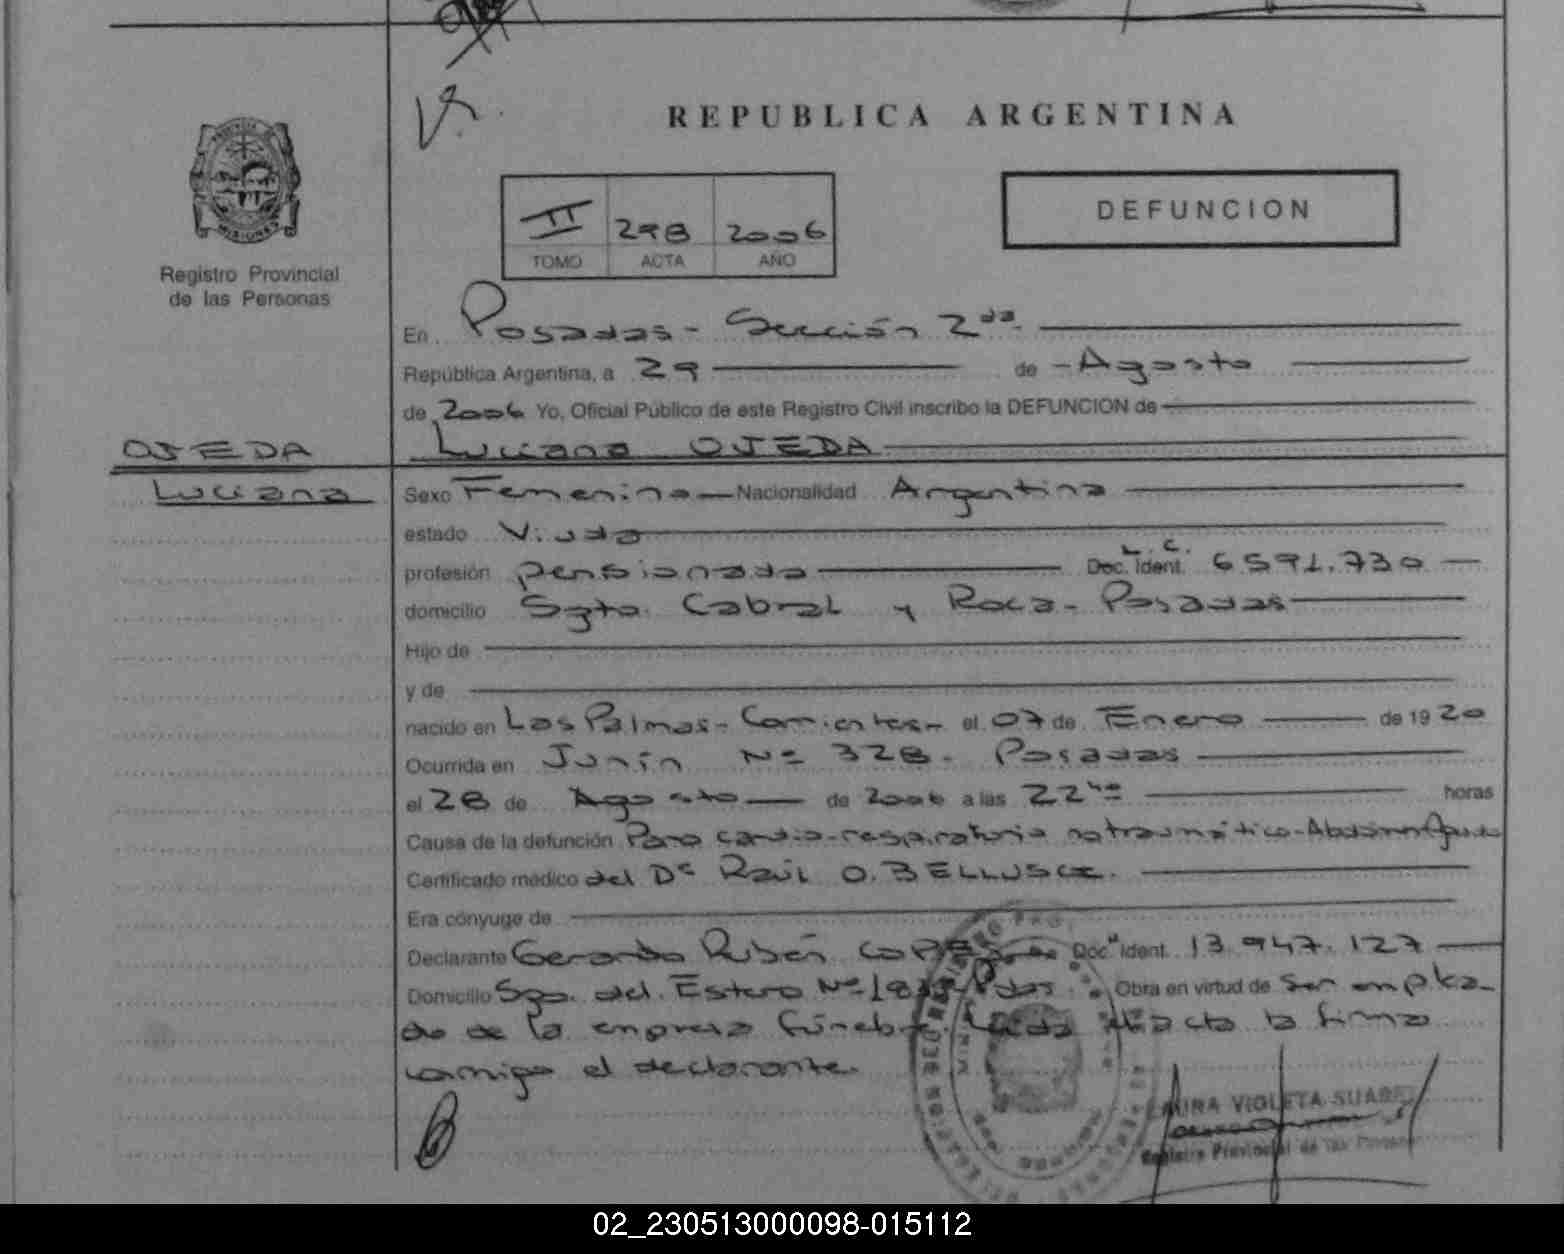 REPUBLICA ARGENTINA
DEFUNCION
II 298 2006
TOMO ACTA AÑO
MISIONES
Registro Provincial
de las Personas
En Posadas - Sección 2da
República Argentina, a 29 de Agosto
de 2006 Yo, Oficial Público de este Registro Civil inscribo la DEFUNCION de
OJEDA Luciana OJEDA
Luciana Sexo Femenino Nacionalidad Argentina
estado Viuda
profesión pensionada Doc. Ident. L.C. 6.591.730
domicilio Sgto. Cabral y Roca - Posadas
Hijo de
y de
nacido en Las Palmas - Corrientes - el 07 de Enero de 1920
Ocurrida en Junín Nº 328 - Posadas
el 28 de Agosto de 2006 a las 22 horas
Causa de la defunción Paro cardio-respiratorio no traumático - Abdomen Agudo
Certificado médico del Dr Raúl O. BELLUSCI
Era cónyuge de
Declarante Gerardo Rubén Doc. Ident. 13.947.127
Domicilio Sgo. del Estero Nº Pdas. Obra en virtud de Ser emplea-
do de la empresa fúnebre. Leída el acta la firma
conmigo el declarante.
LAURA VIOLETA SUAREZ
Registro Provincial de las Personas
02_230513000098-015112